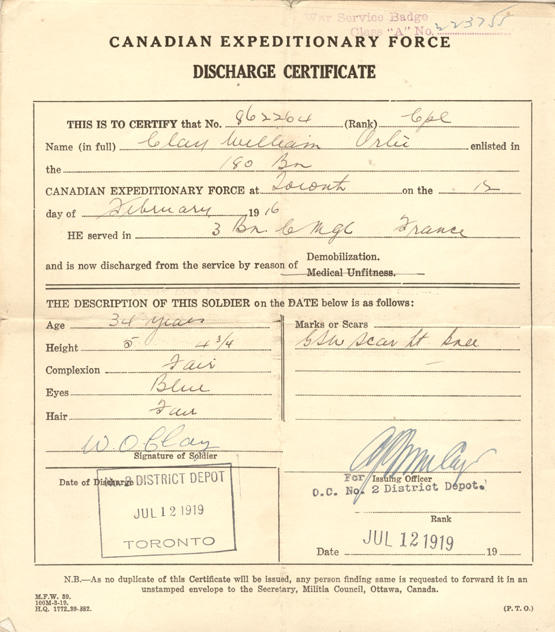 War Service Badge
Class "A" No. 223755
CANADIAN EXPEDITIONARY FORCE
DISCHARGE CERTIFICATE
THIS IS TO CERTIFY that No. 862264 (Rank) Cpl
Name (in full) Clay William Orlie enlisted in
the 180 Bn
CANADIAN EXPEDITIONARY FORCE at Toronto on the 12
day of February 1916
HE served in 3 Bn C M G C France
and is now discharged from the service by reason of Demobilization.
Medical Unfitness.
THE DESCRIPTION OF THIS SOLDIER on the DATE below is as follows:
Age 34 years
Height 5 4 3/4
Complexion Fair
Eyes Blue
Hair Fair
Marks or Scars
GSW scar Lt knee
W. O Clay
Signature of Soldier
Date of Discharge
No. 2 DISTRICT DEPOT
JUL 12 1919
TORONTO
For Issuing Officer
O.C. No. 2 District Depot.
Rank
Date JUL 12 1919 19
N.B.—As no duplicate of this Certificate will be issued, any person finding same is requested to forward it in an
unstamped envelope to the Secretary, Militia Council, Ottawa, Canada.
M.F.W. 39.
100M-3-19.
H.Q. 1772-39-882.
(P. T. O.)